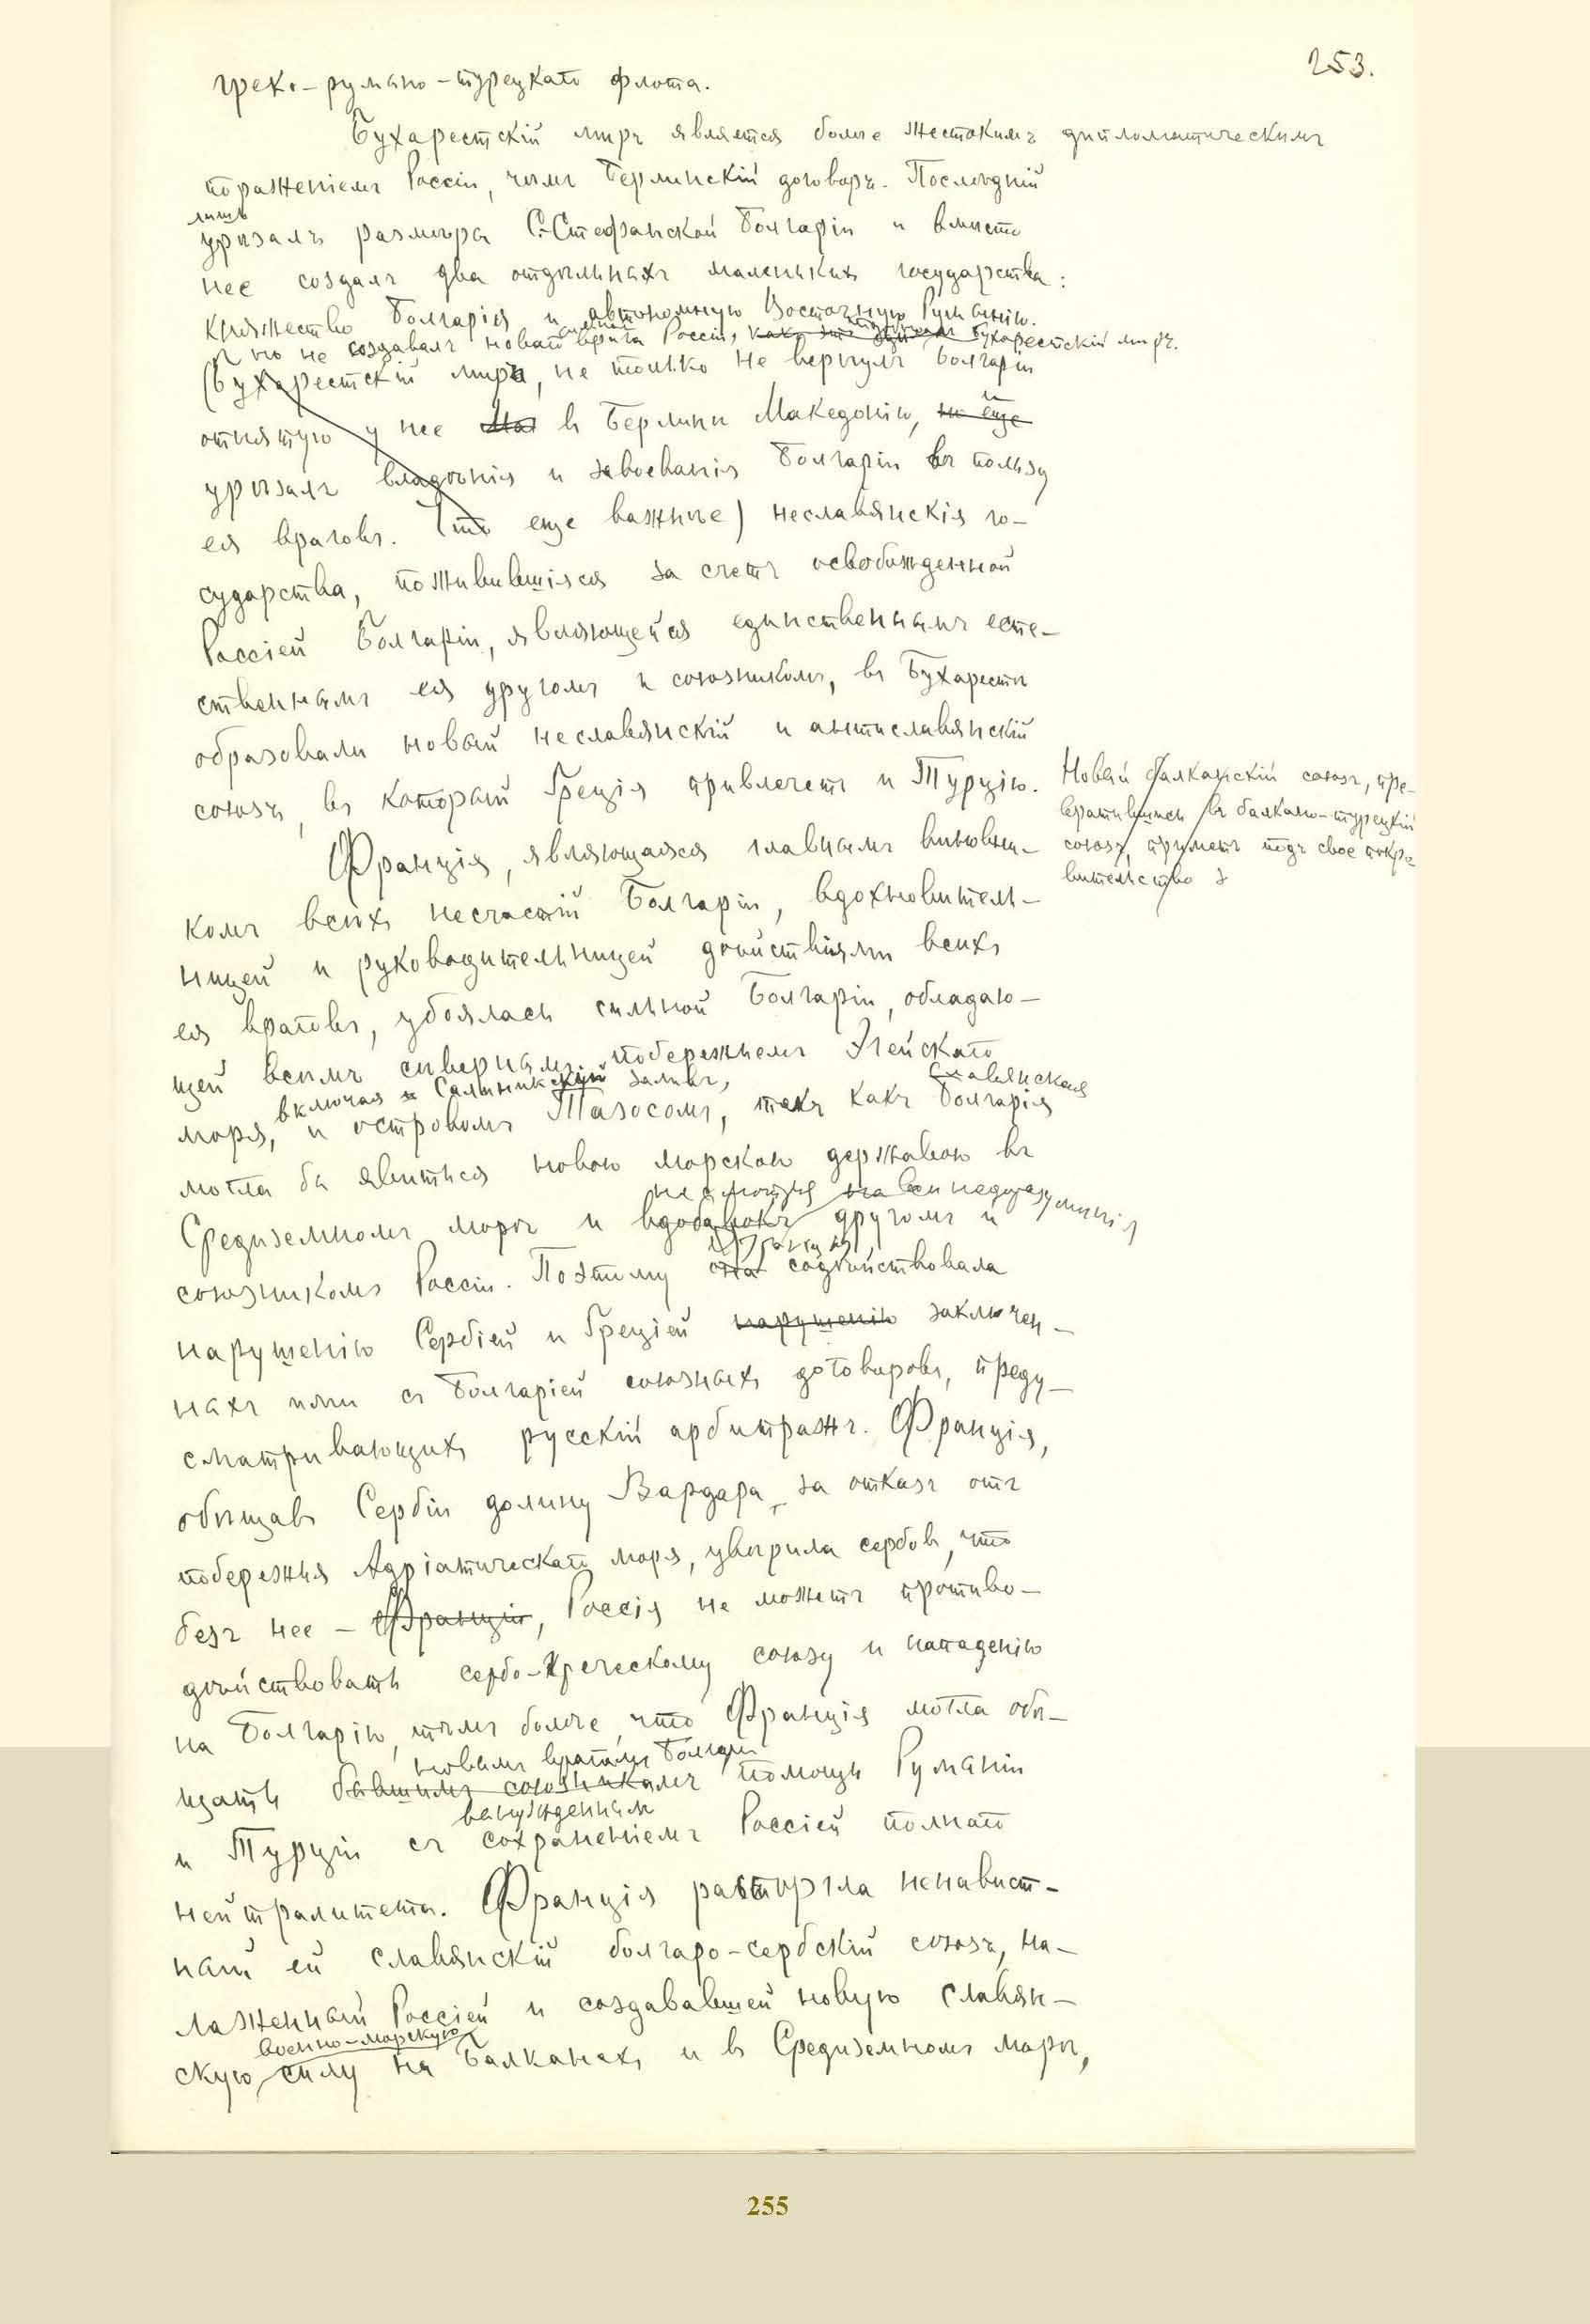 253.
греко-румано-турецкаго флота.
Бухарестскій миръ является болѣе жестокимъ дипломатическимъ
пораженіемъ Россіи, чѣмъ Берлинскій договоръ. Послѣдній
лишь
урѣзалъ размѣра С.-Стефанской Болгаріи и вмѣсто
нее создалъ два отдѣльныхъ маленькихъ государства:
Княжество Болгарія и автономную Восточную Румелію.
но не создавалъ новаго врага Россіи, Бухарестскій миръ.
(Бухарестскій миръ, не только не вернулъ Болгаріи
отнятую у нее въ Берлинѣ Македонію, не еще
урѣзалъ владѣнія и завоеванія Болгаріи въ пользу
ея враговъ. (что еще важнѣе) неславянскія го-
сударства, поживившіяся за счетъ освобожденной
Россіей Болгаріи, являющейся единственнымъ есте-
ственнымъ ея другомъ и союзникомъ, въ Бухарестѣ
образовали новый неславянскій и антиславянскій
союзъ, въ который Греція привлечетъ и Турцію.
Новый балканскій союзъ, пре-
вратившись въ балкано-турецкій
союзъ, приметъ подъ свое покро-
вительство
Франція, являющаяся главнымъ виновни-
комъ всѣхъ несчастій Болгаріи, вдохновитель-
ницей и руководительницей дѣйствіями всѣхъ
ея враговъ, убоялась сильной Болгаріи, обладаю-
щей всѣмъ сѣвернымъ побережіемъ Эгейскаго
включая Салоникскій заливъ, славянская
моря, и островомъ Тазосомъ, такъ какъ Болгарія
могла бы явиться новою морскою державою въ
не смотря на всѣ недоразумѣнія
Средиземномъ морѣ и вдобавокъ другомъ и
Франція
союзникомъ Россіи. Поэтому она содѣйствовала
нарушенію Сербіей и Греціей нарушенію заключен-
ныхъ ими съ Болгаріей союзныхъ договоровъ, преду-
сматривающихъ русскій арбитражъ. Франція,
обѣщавъ Сербіи долину Вардара, за отказъ отъ
побережья Адріатическаго моря, увѣрила сербовъ, что
безъ нее – Франціи, Россія не можетъ противо-
дѣйствовать сербо-греческому союзу и нападенію
на Болгарію, тѣмъ болѣе, что Франція могла обѣ-
новымъ врагамъ Болгаріи
щать бывшимъ союзникамъ помощь Румыніи
вынужденнымъ
и Турціи съ сохраненіемъ Россіей полнаго
нейтралитета. Франція расторгла ненавист-
ный ей славянскій болгаро-сербскій союзъ, на-
лаженный Россіей и создававшей новую славян-
военно-морскую
скую силу на Балканахъ и въ Средиземномъ морѣ,
255